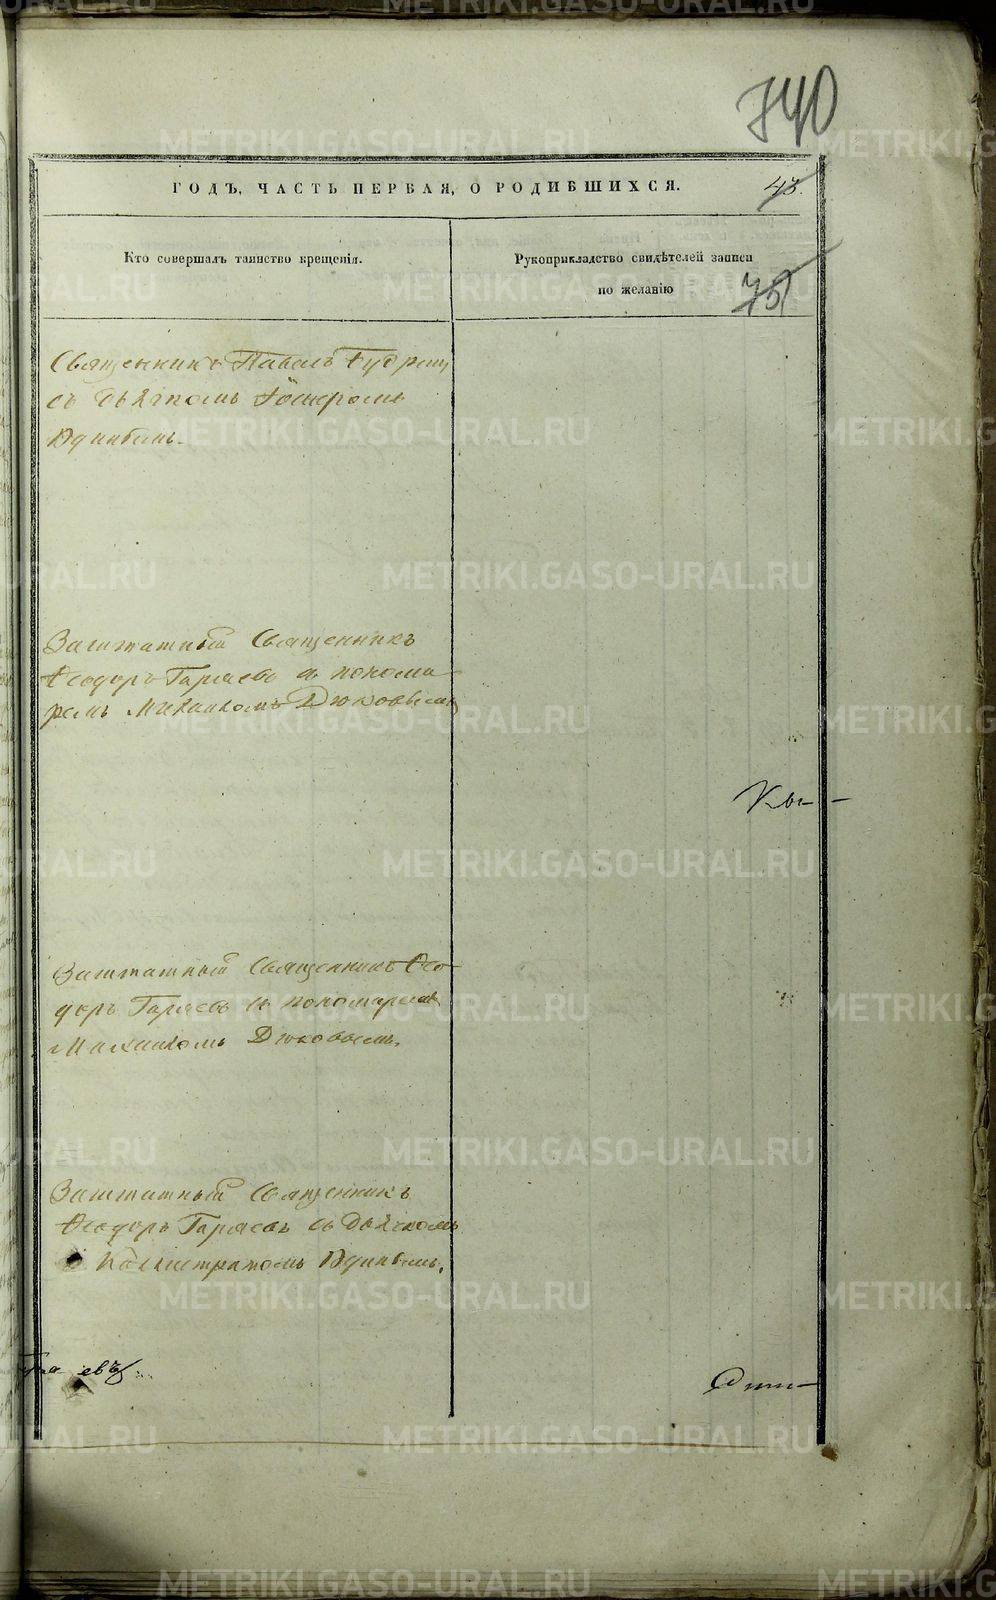 740
ГОДЪ, ЧАСТЬ ПЕРВАЯ, О РОДИВШИХСЯ.
43.
Кто совершалъ таинство крещенія.
Рукоприкладство свидѣтелей записи
по желанію
75
Священникъ Павелъ
съ дьячкомъ
Удинцевымъ
Заштатный Священникъ
Ѳеодоръ Гаряевъ съ понома-
ремъ Михаиломъ Дюковымъ
Кы-
Заштатный Священникъ Ѳео-
доръ Гаряевъ съ пономаремъ
Михаиломъ Дюковымъ.
Заштатный Священникъ
Ѳеодоръ Гаряевъ съ Дьячкомъ
Каллистратомъ
евъ
METRIKI.GASO-URAL.RU